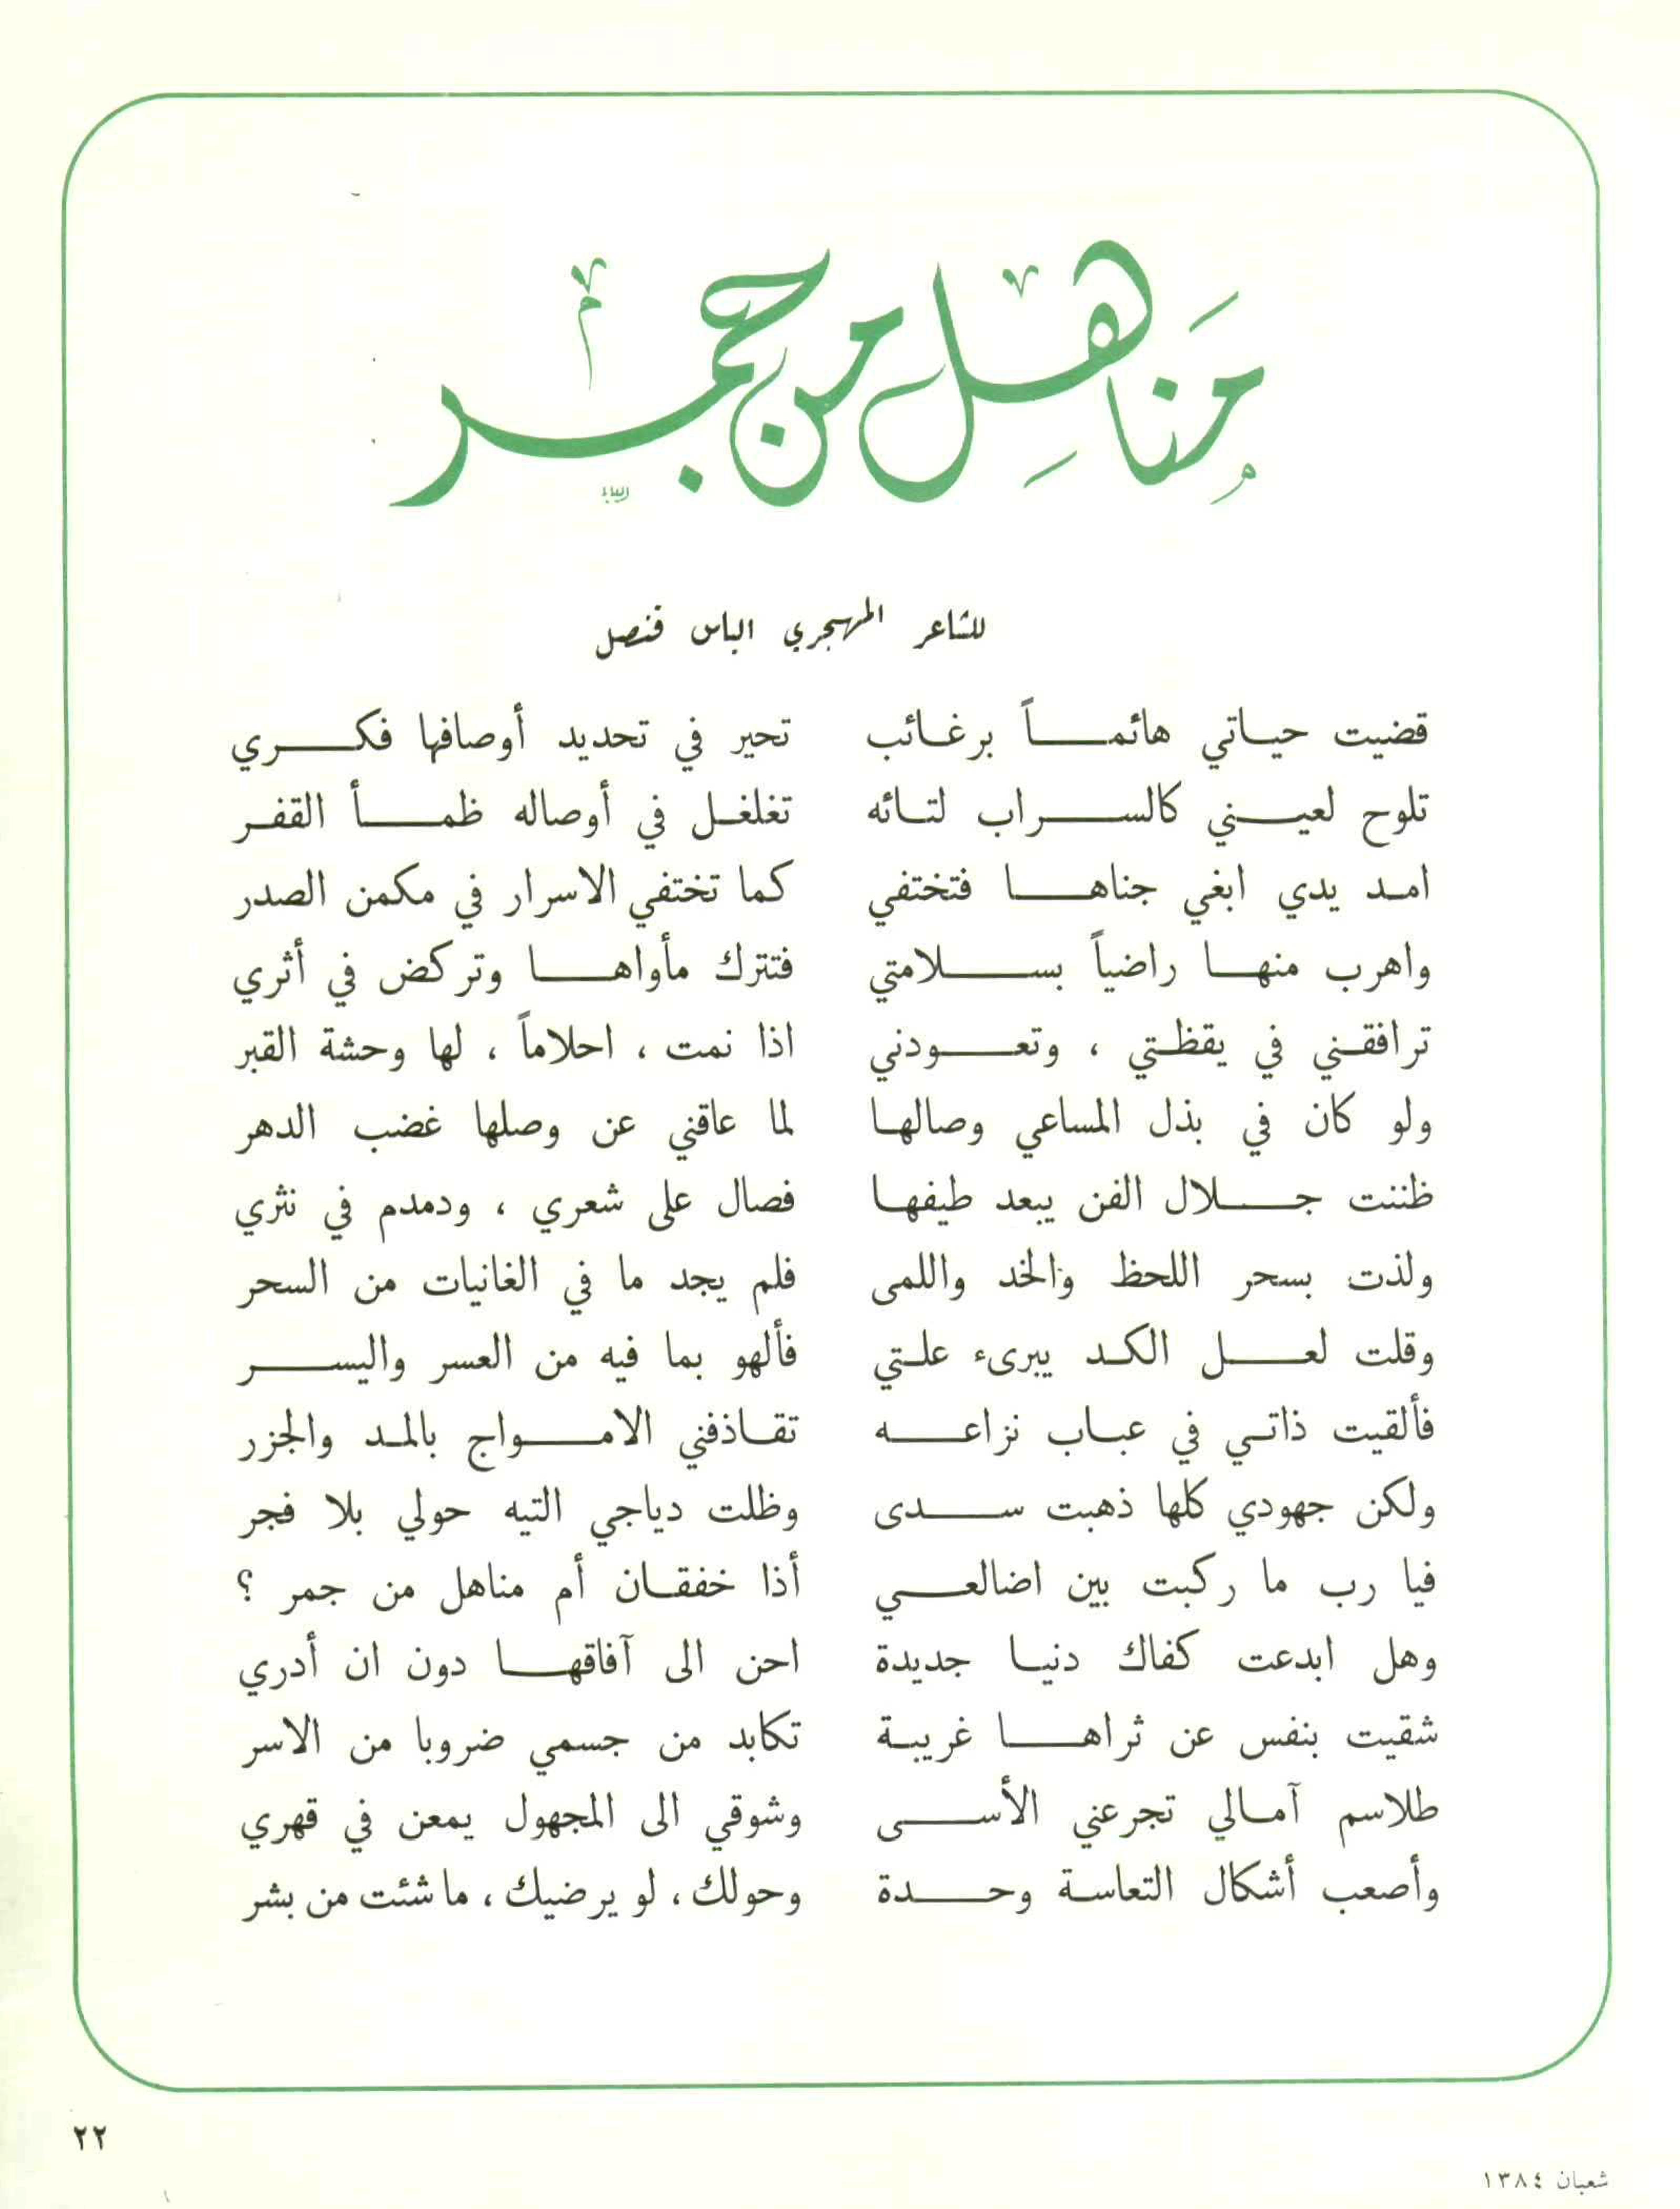 مَناهِل من جمر
للشاعر المهجري الياس قنصل
قضيت حياتي هائماً برغائب تحير في تحديد أوصافها فكري
تلوح لعيني كالسراب لتائه تغلغل في أوصاله ظمأ القفر
امد يدي ابغي جناها فتختفي كما تختفي الاسرار في مكمن الصدر
واهرب منها راضياً بسلامتي فتترك مأواها وتركض في أثري
ترافقني في يقظتي ، وتعودني اذا نمت ، احلاماً ، لها وحشة القبر
ولو كان في بذل المساعي وصالها لما عاقني عن وصلها غضب الدهر
ظننت جلال الفن يبعد طيفها فصال على شعري ، ودمدم في نثري
ولذت بسحر اللحظ والخد واللمى فلم يجد ما في الغانيات من السحر
وقلت لعل الكد يبرىء علتي فألهو بما فيه من العسر واليسر
فألقيت ذاتي في عباب نزاعه تقاذفني الامواج بالمد والجزر
ولكن جهودي كلها ذهبت سدى وظلت دياجي التيه حولي بلا فجر
فيا رب ما ركبت بين اضالعي أذا خفقان أم مناهل من جمر ؟
وهل ابدعت كفاك دنيا جديدة احن الى آفاقها دون ان أدري
شقيت بنفس عن ثراها غريبة تكابد من جسمي ضروبا من الاسر
طلاسم آمالي تجرعني الأسى وشوقي الى المجهول يمعن في قهري
وأصعب أشكال التعاسة وحدة وحولك ، لو يرضيك ، ما شئت من بشر
٢٢
شعبان ١٣٨٤